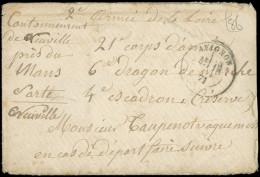 2e Armée de la Loire
Cantonnement
de Neuville
près du
Mans
Sarte
Neuville
21e corps d'armée
6e Dragon de marche
4e escadron (Réserve)
Monsieur Taupenot vaguemestre
en cas de départ faire suivre
AVIGNON
86